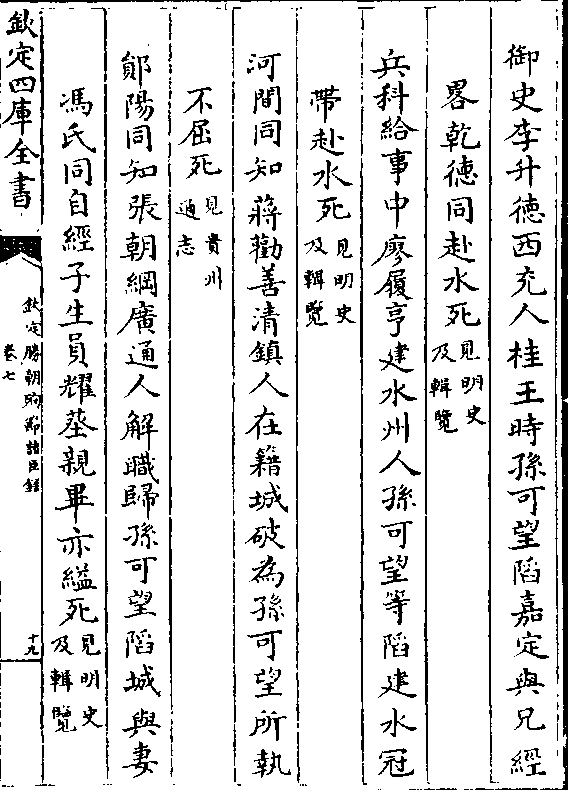 御史李升德西充人桂王時孫可望䧟嘉定與兄經
畧乾德同赴水死見明史及輯覽
兵科給事中廖履亨建水州人孫可望等䧟建水冠
帶赴水死見明史及輯覽
河間同知蔣勸善清鎮人在籍城破為孫可望所執
不屈死見貴州通志
鄖陽同知張朝綱廣通人解職歸孫可望䧟城與妻
馮氏同自經子生員耀葬親畢亦縊死見明史及輯覽
欽定四庫全書
欽定勝朝殉節諸臣錄
卷七
十九